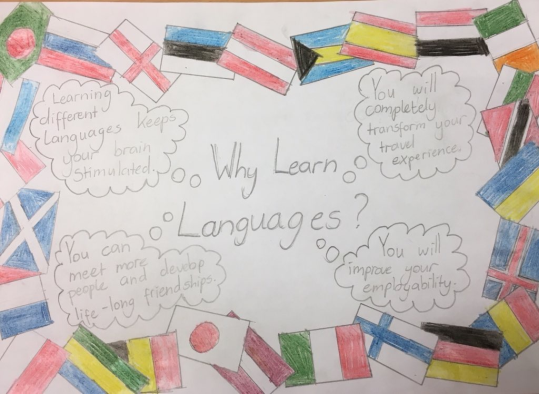 Learning
different
Languages keeps
your brain
stimulated.
You will
completely
transform your
travel
experience.
Why Learn
Languages?
You can
meet more
people and develop
life-long friendships.
You will
improve your
employability.